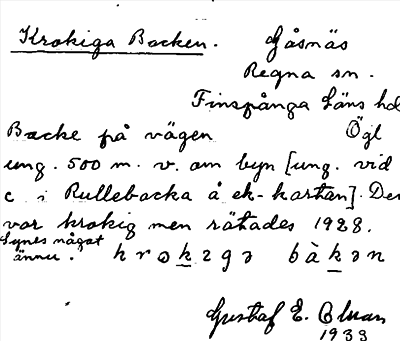 Krokiga Backen. Gåsnäs
Regna sn.
Finspånga läns hd
Backe på vägen Ögl
ung. 500 m. v. om byn [ung. vid
c i Rullebacka å ek-kartan]. Den
var krokig men rätades 1928.
Synes något
ännu.
krokəgə bàkən
Gustaf E.
1933